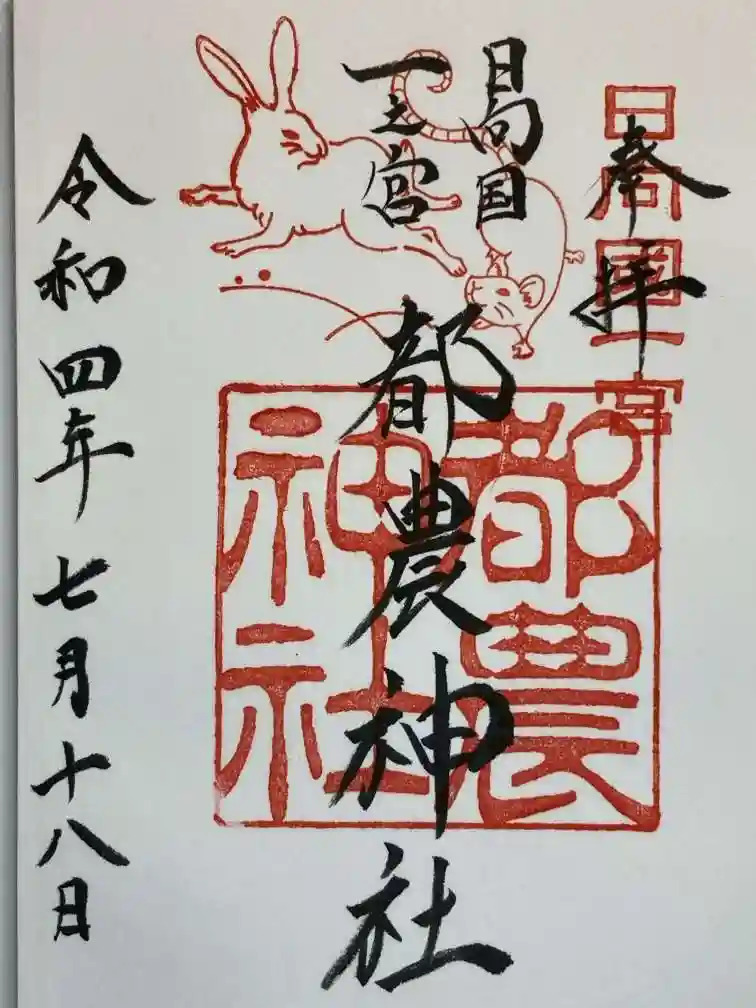 日向國一宮
奉拝
日向国
一之宮
都農神社
都農
神社
令和四年七月十八日